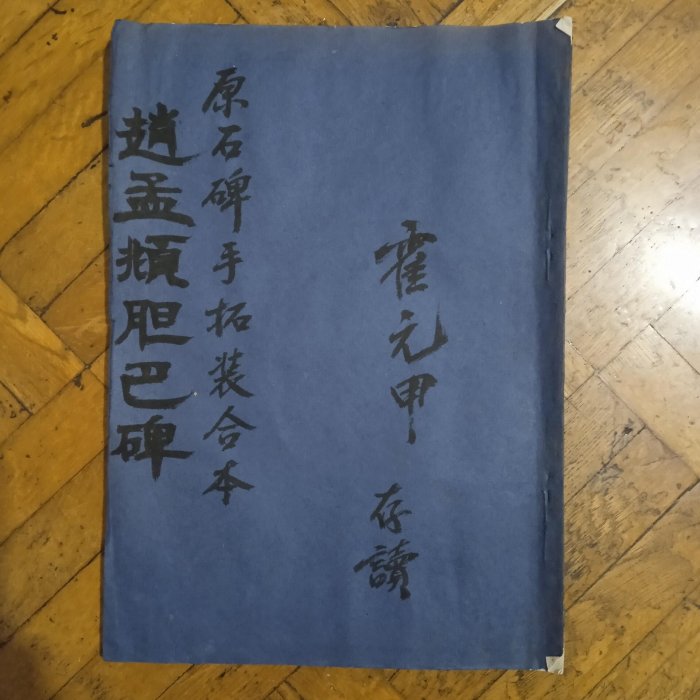 霍元甲 存讀
原石碑手拓装合本
趙孟頫胆巴碑